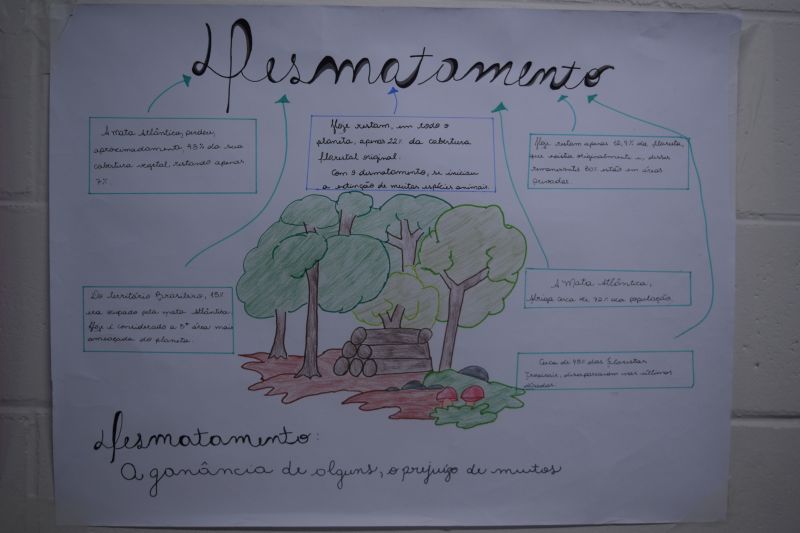 Desmatamento
A Mata Atlântica, perdeu,
aproximadamente 93% da sua
cobertura vegetal, restando apenas
7%.
Hoje restam, em todo o
planeta, apenas 22% da cobertura
florestal original.
Com o desmatamento, se iniciou
a extinção de muitas espécies animais.
Hoje restam apenas 12,4% da floresta,
que existia originalmente e, desses
remanescentes 80% estão em áreas
privadas.
Do território Brasileiro, 15%
era ocupado pela mata Atlântica.
Hoje é considerado a 5ª área mais
ameaçada do planeta.
A Mata Atlântica,
abriga cerca de 72% da população.
Cerca de 48% das Florestas
Tropicais, desapareceram nas últimas
décadas.
Desmatamento:
A ganância de alguns, o prejuízo de muitos